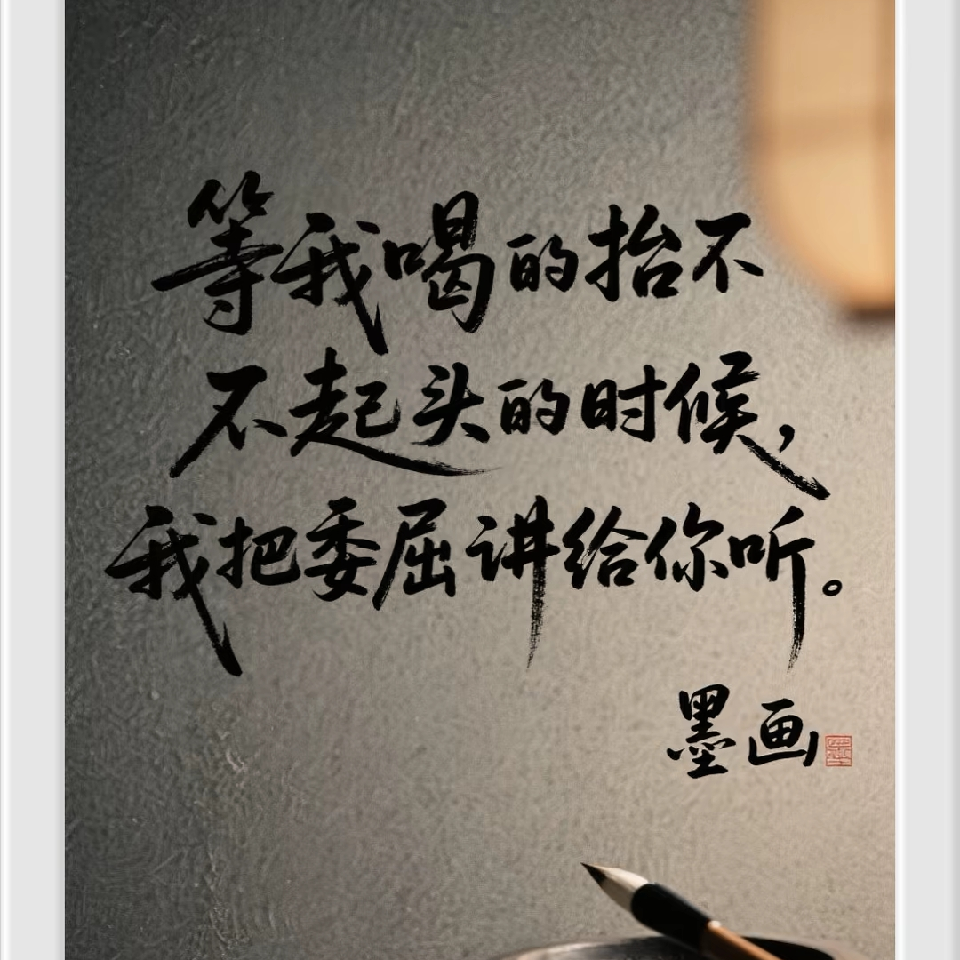 等我喝的抬不
不起头的时候,
我把委屈讲给你听。
墨画